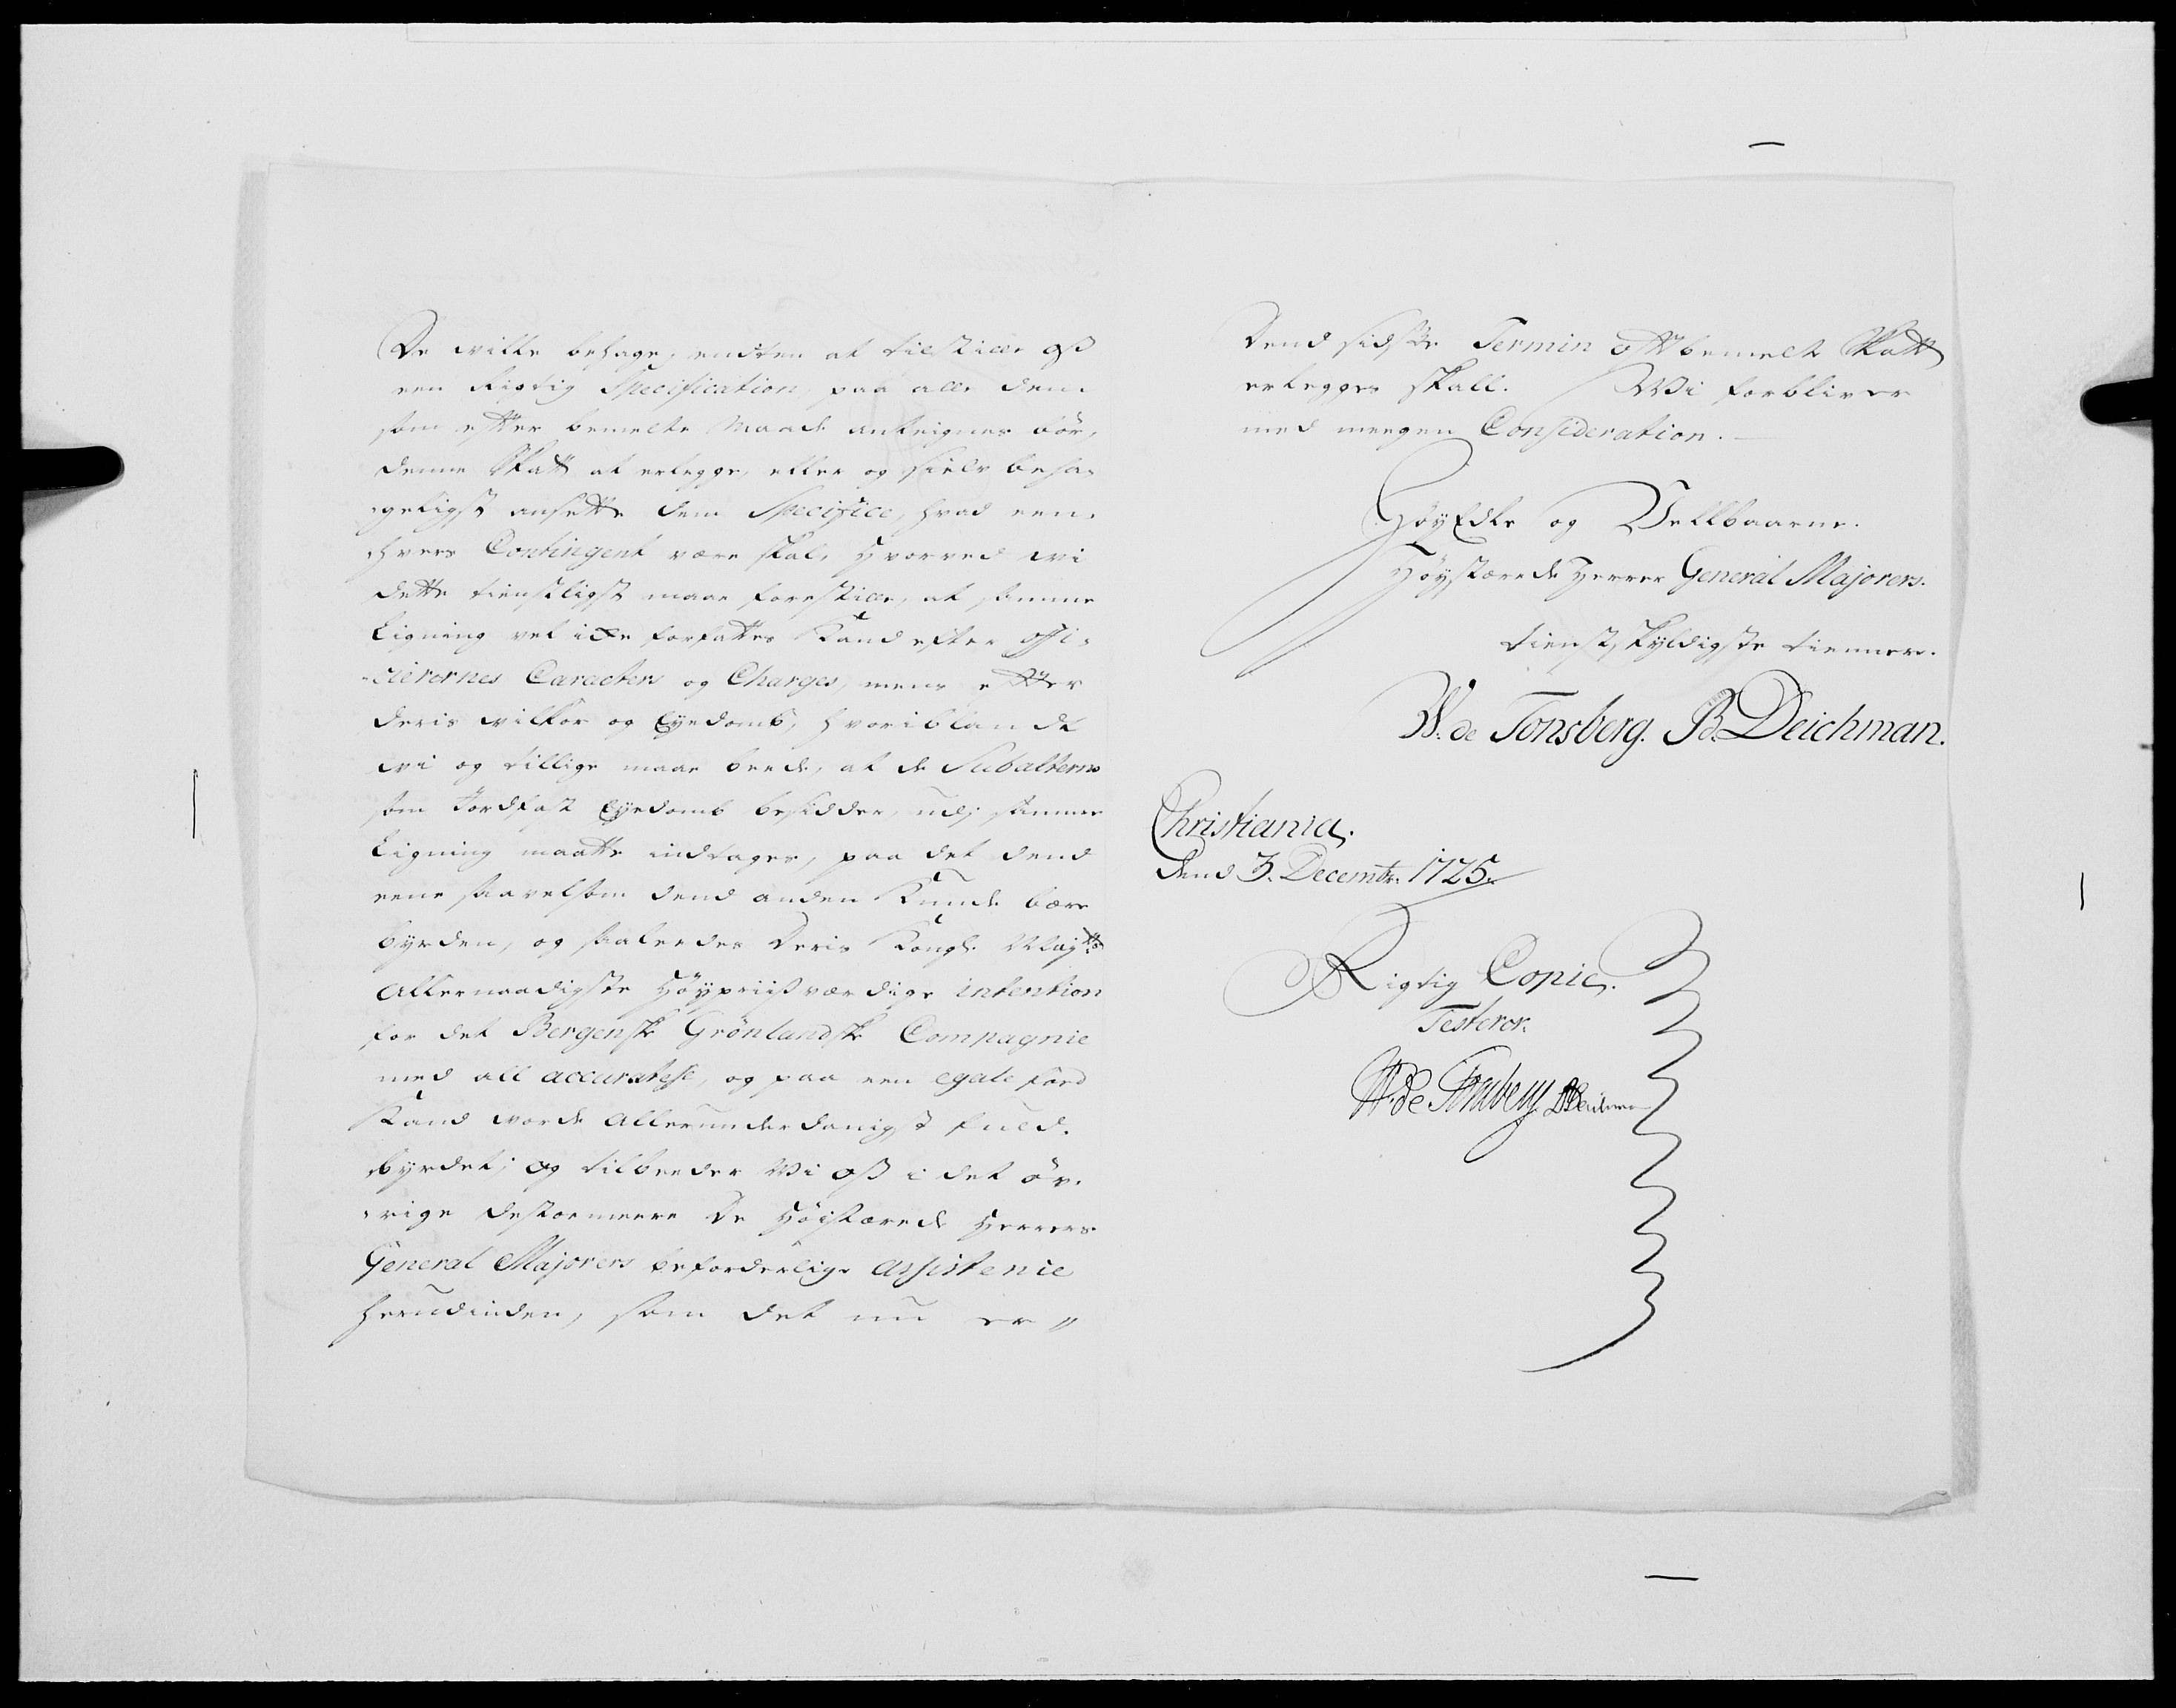 De wille behage, endten at tilskicke oß
een Rigtig Specification, paa alle dem
som efter bemelte Maade anteignes bör,
denne Skatt at erlegge, eller og sielv beha-
geligst ansette dem Specifice, hvad een-
hvers Contingent være skal, hvorved wi
dette tienstligst maae forestille, at samme
Ligning vel icke forfattes Kand efter offi-
cierernes Caracter og Charges, mens efter
deris wilkor og Eyedomb, hvoriblandt
wi og tillige maae beede, at de Subalterne
som Jordfast Eyedomb besidder, udj samme
Ligning maatte indtages, paa det dend
eene saavelsom dend anden Kunde bære
byrden, og saaledes Deris Kongl: Maytts
Allernaadigste Höypriisværdige intention
for det Bergenske Grönlandske Compagnie
med all accuratesse, og paa een egale foed
Kand worde Allerunderdanigst fuld-
byrdet; og tilbeeder Wi oß i det öv-
rige destoemeere De Höistærede Herrers
General Majorers beforderlige assistence
herudinden, som det nu er
Dend sidste Termin oftbemelte Skatt
erlegges skall. Wi forbliver
med meegen Consideration.
HöyEdle og Vellbaarne.
Höystærede Herrer General Majorers.
tienstskyldigste tiennere.
W. de Tonsberg. B. Deichman.
Christiania.
Dend 3. Decembr: 1725.
Rigtig Copie.
Testerer.
W. de Tonsberg BDeichman